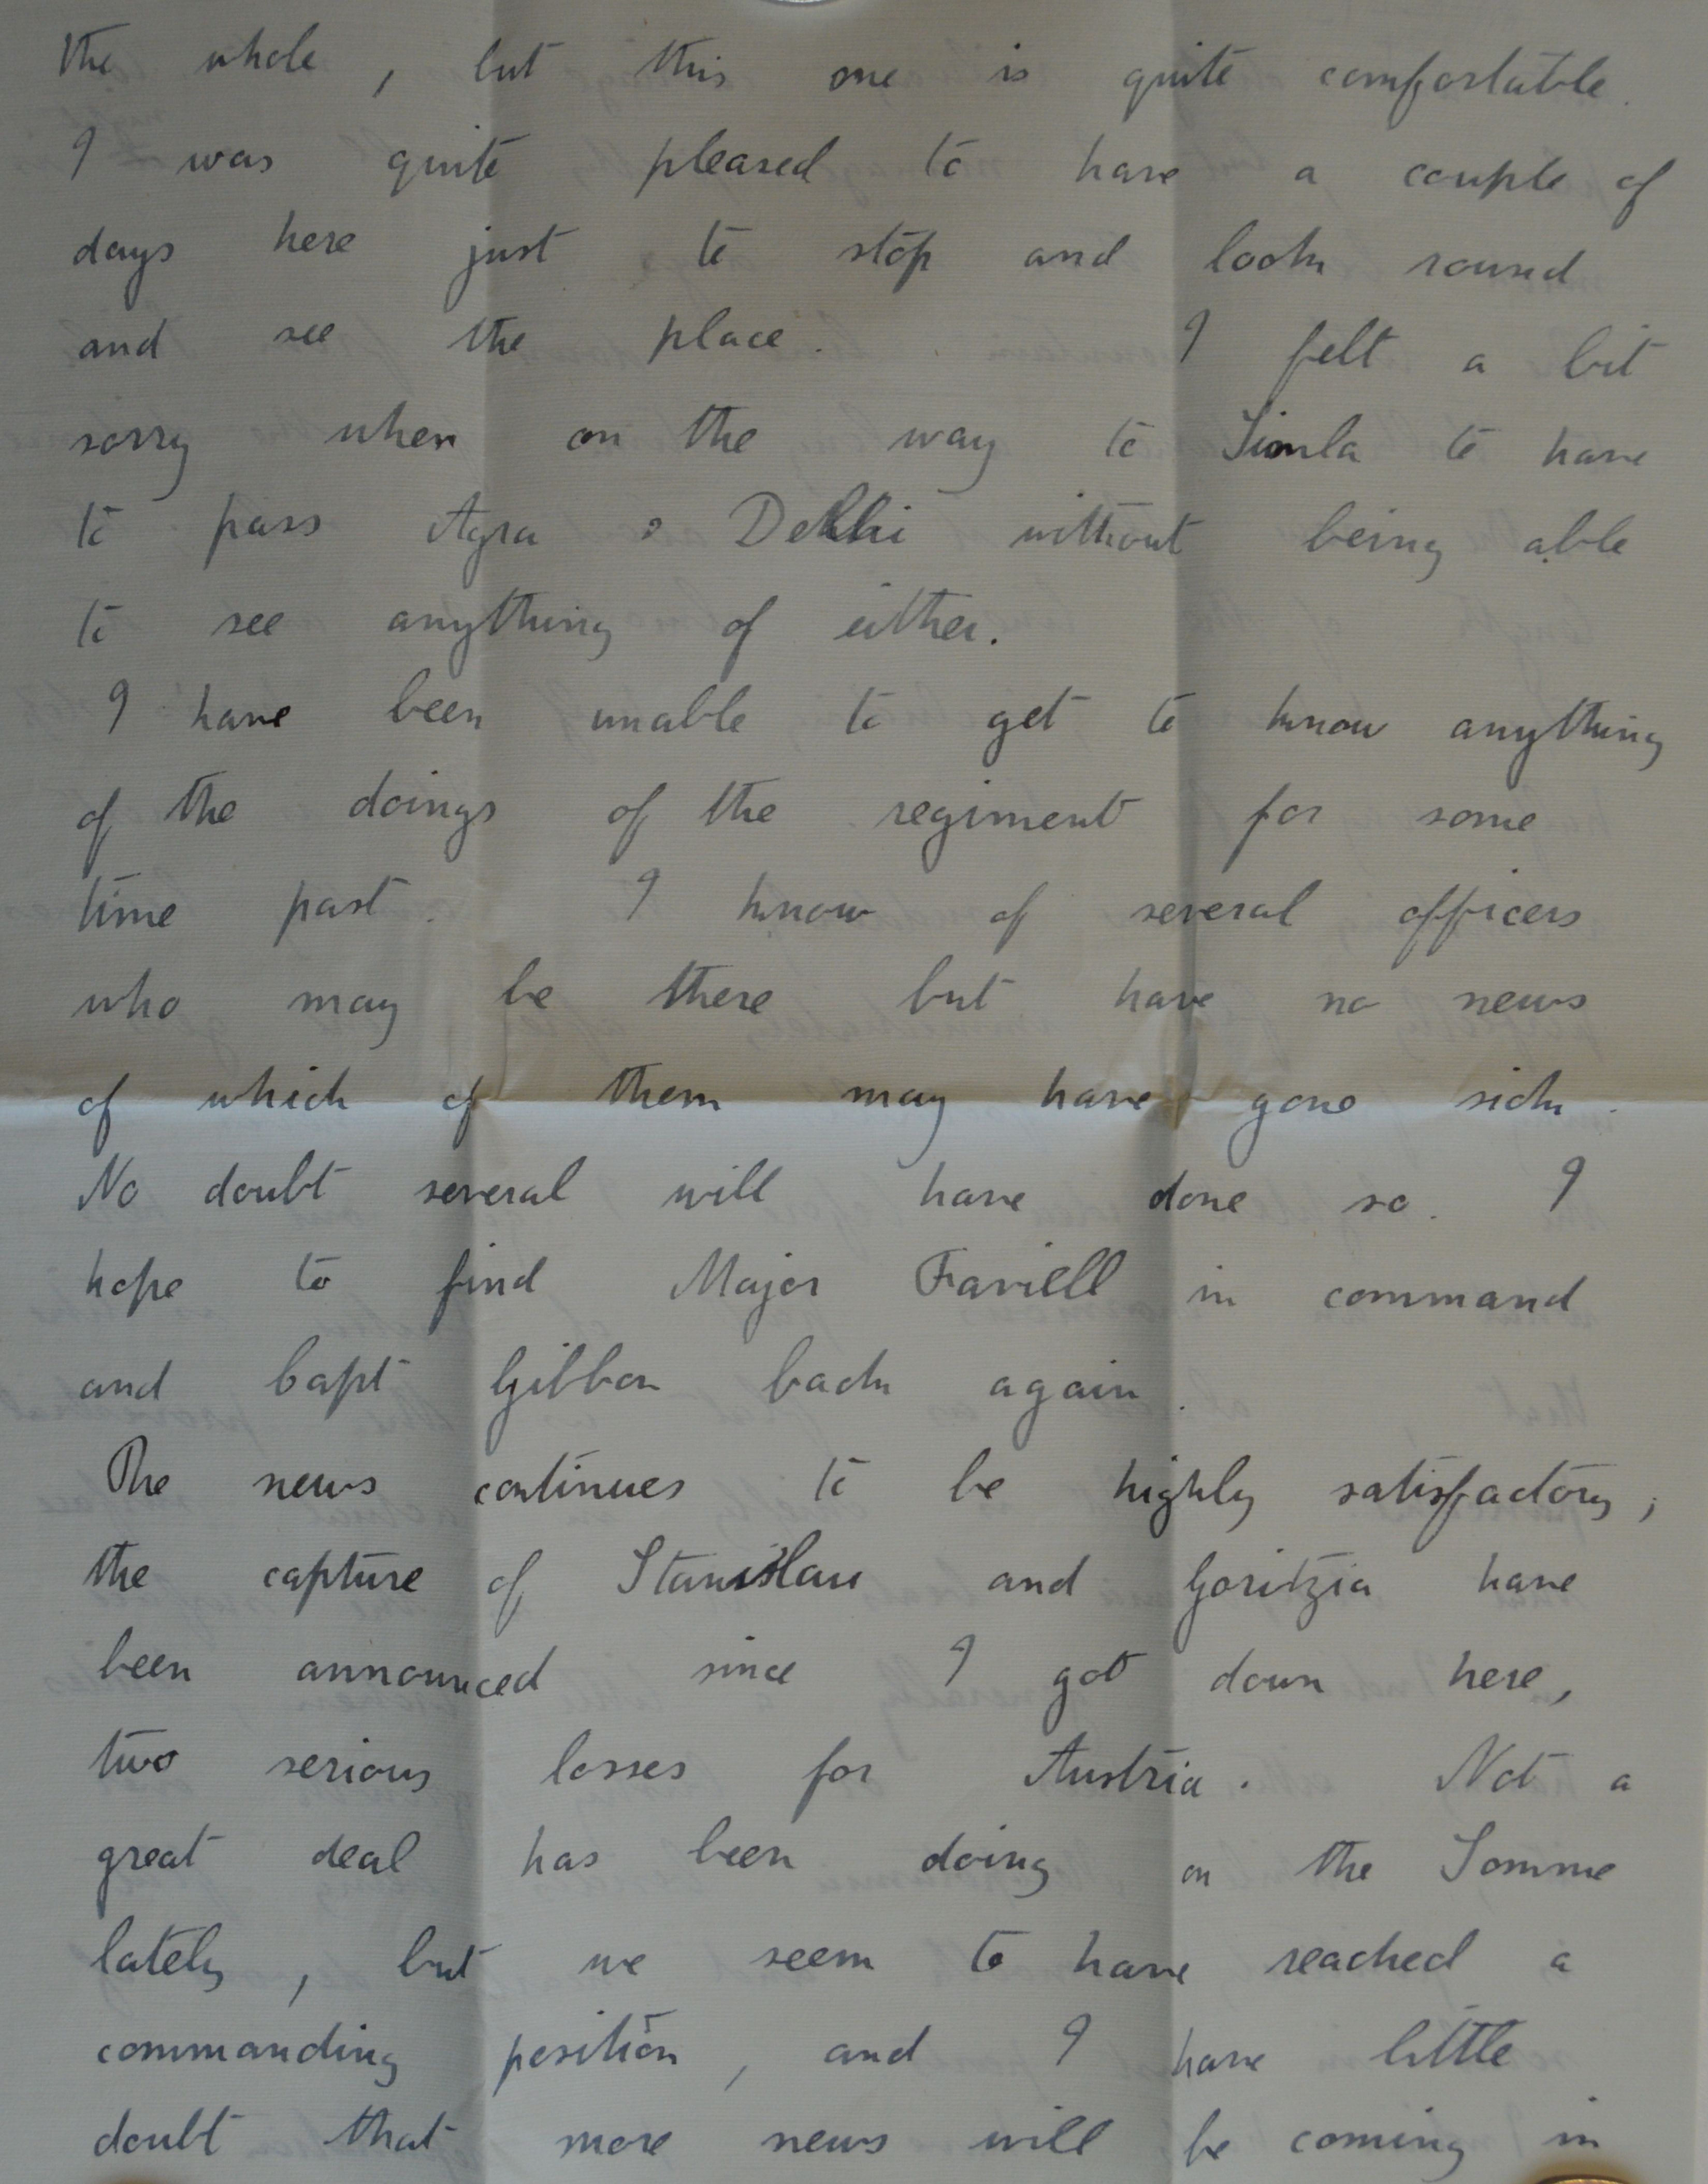 the whole, but this one is quite comfortable.
I was quite pleased to have a couple of
days here just to stop and look round
and see the place. I felt a bit
sorry when on the way to Simla to have
to pass Agra & Delhi without being able
to see anything of either.
I have been unable to get to know anything
of the doings of the regiment for some
time past. I know of several officers
who may be there but have no news
of which of them may have gone sick.
No doubt several will have done so. I
hope to find Major Farviell in command
and Capt Gibbon back again.
The news continues to be highly satisfactory;
the capture of Stanislau and Goritzia have
been announced since I got down here,
two serious losses for Austria. Not a
great deal has been doing on the Somme
lately, but we seem to have reached a
commanding position, and I have little
doubt that more news will be coming in